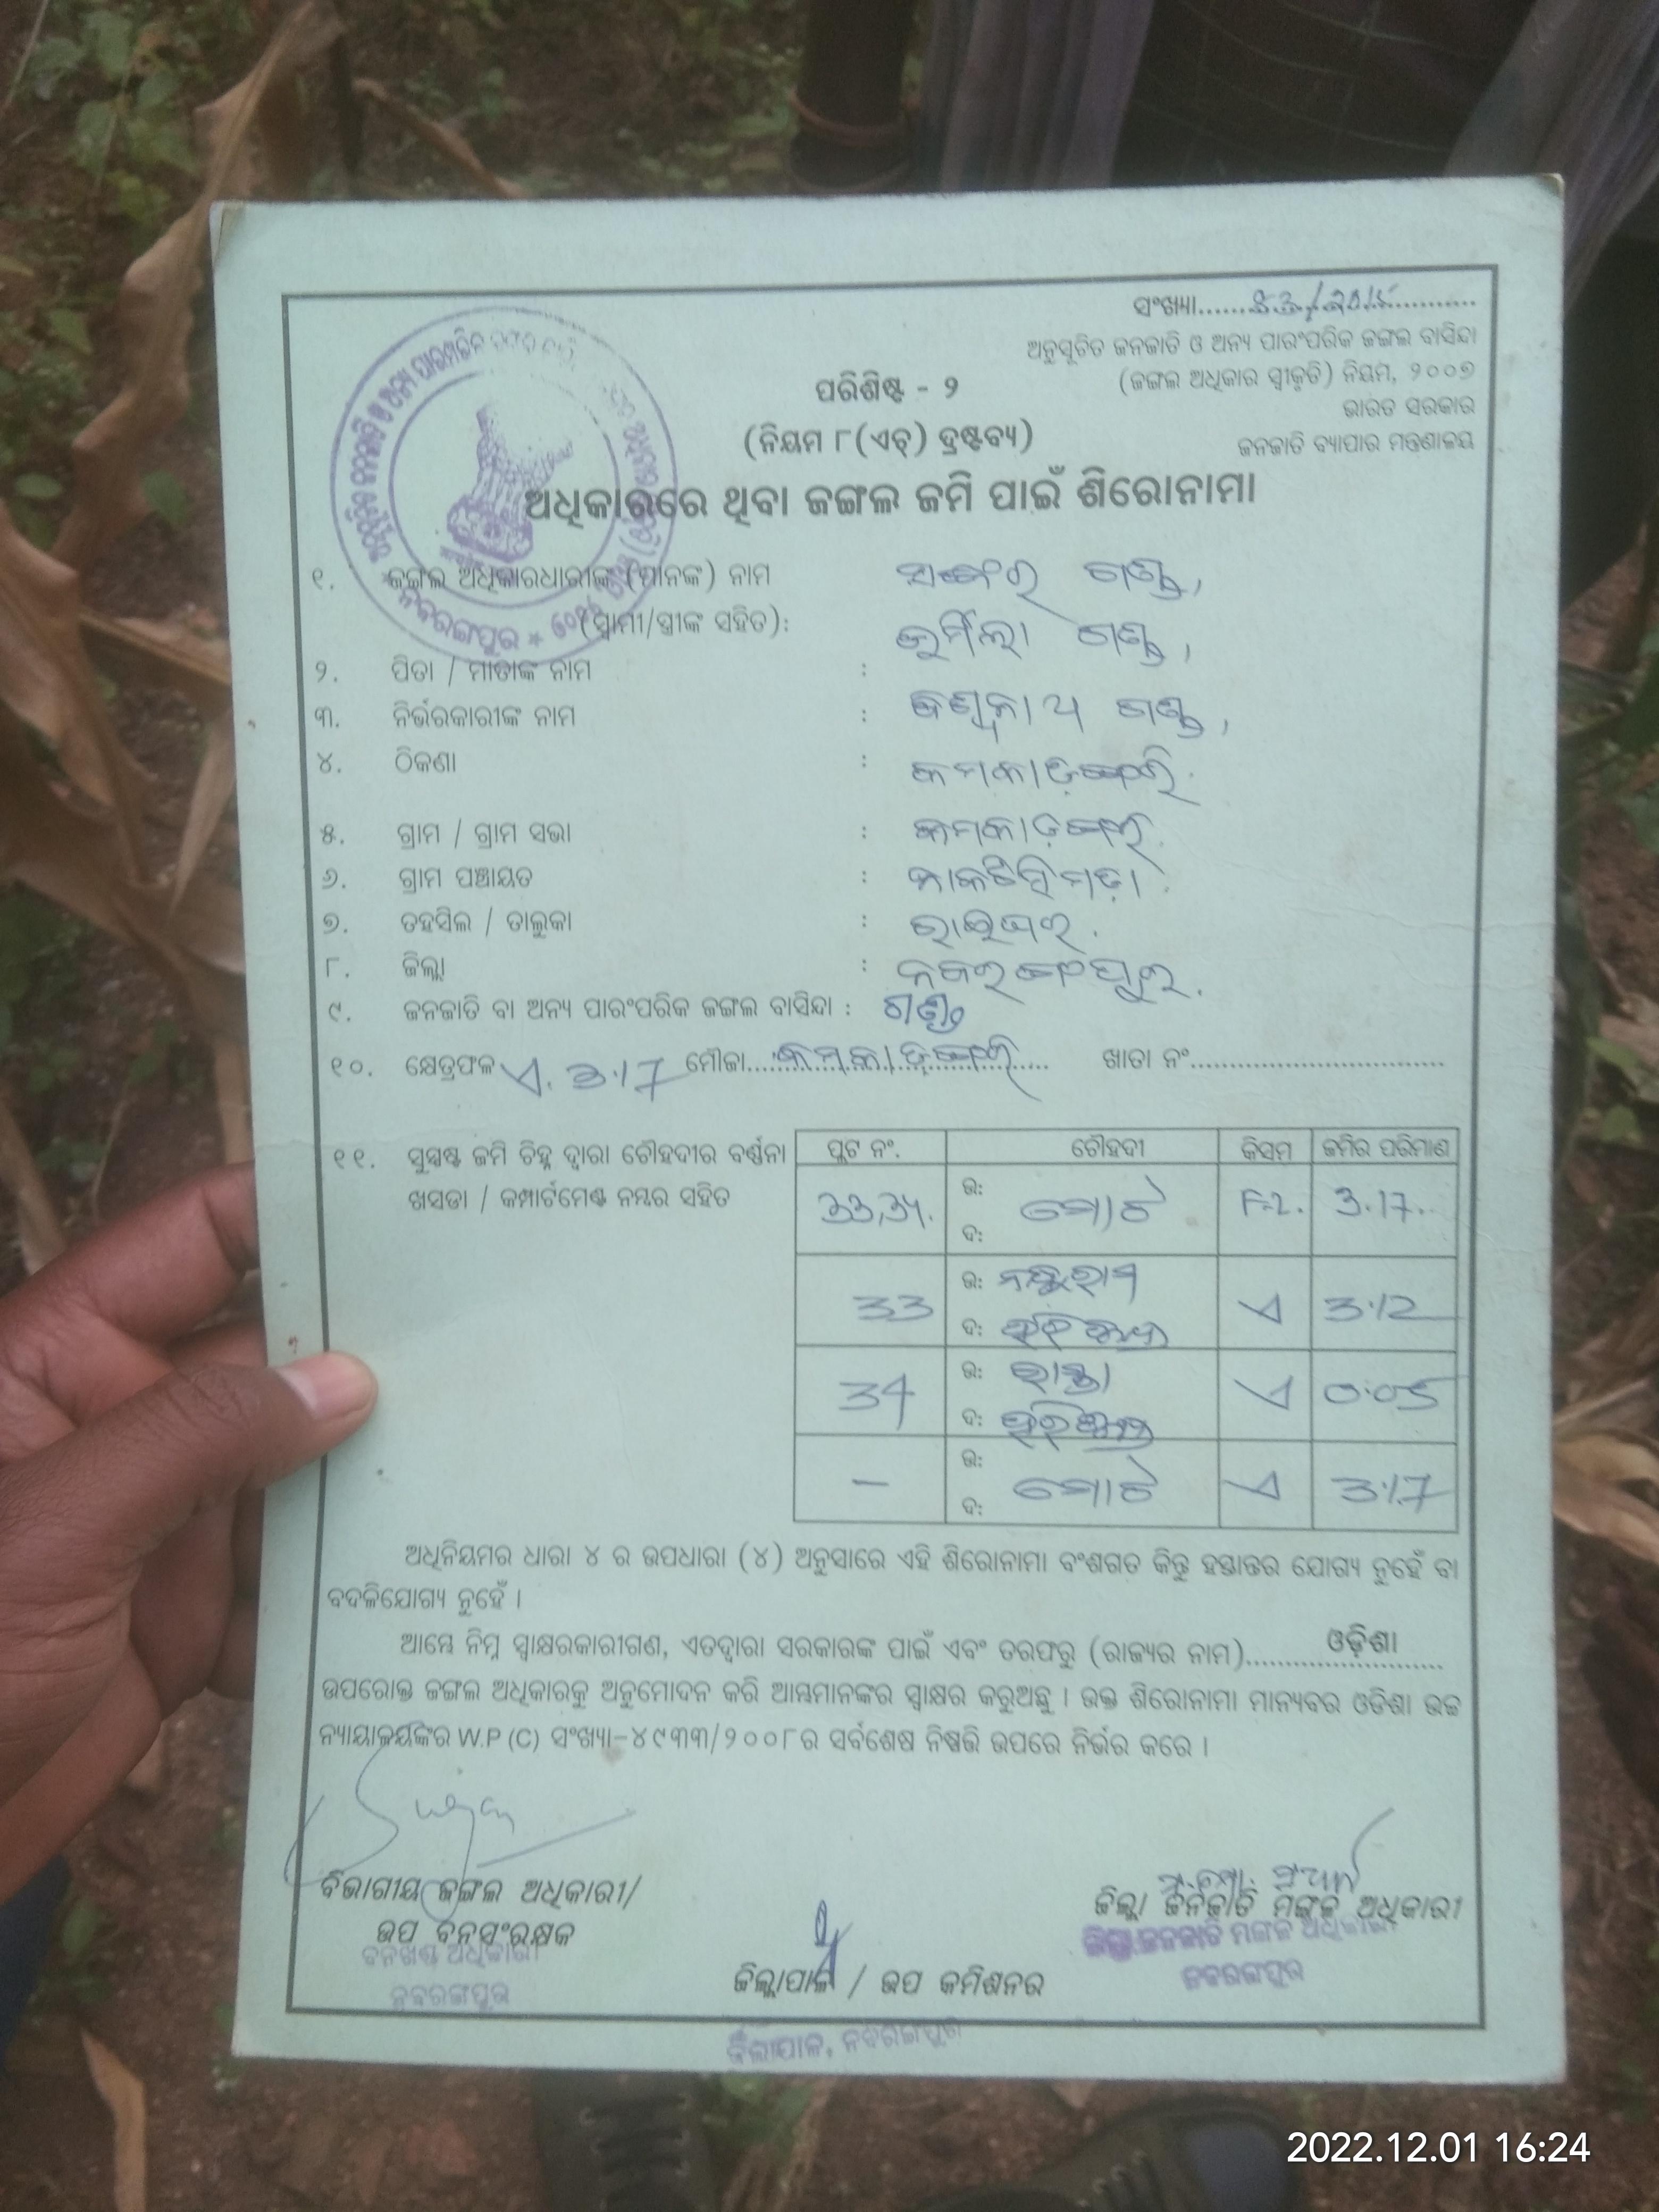 ସଂଖ୍ୟା......
ଅନୁସୂଚିତ ଜନଜାତି ଓ ଅନ୍ୟ ପାରଂପରିକ ଜଙ୍ଗଲ ବାସିନ୍ଦା
(ଜଙ୍ଗଲ ଅଧିକାର ସ୍ୱୀକୃତି) ନିୟମ, ୨୦୦୭
ଭାରତ ସରକାର
ଜନଜାତି ବ୍ୟାପାର ମନ୍ତ୍ରଣାଳୟ
ପରିଶିଷ୍ଟ - ୨
(ନିୟମ ୮(ଏଚ୍) ଦ୍ରଷ୍ଟବ୍ୟ)
ଅଧିକାରରେ ଥିବା ଜଙ୍ଗଲ ଜମି ପାଇଁ ଶିରୋନାମା
୧. ଜଙ୍ଗଲ ଅଧିକାରଧାରୀଙ୍କ (ମାନଙ୍କ) ନାମ ଗଣ୍ଡ,
(ସ୍ୱାମୀ/ସ୍ତ୍ରୀଙ୍କ ସହିତ): ଉର୍ମିଲା ଗଣ୍ଡ,
୨. ପିତା / ମାତାଙ୍କ ନାମ :
୩. ନିର୍ଭରକାରୀଙ୍କ ନାମ : ଗଣ୍ଡ,
୪. ଠିକଣା :
୫. ଗ୍ରାମ / ଗ୍ରାମ ସଭା :
୬. ଗ୍ରାମ ପଞ୍ଚାୟତ :
୭. ତହସିଲ / ତାଲୁକା : ରାଇଘର.
୮. ଜିଲ୍ଲା : ନବରଙ୍ଗପୁର.
୯. ଜନଜାତି ବା ଅନ୍ୟ ପାରଂପରିକ ଜଙ୍ଗଲ ବାସିନ୍ଦା : ଗଣ୍ଡ
୧୦. କ୍ଷେତ୍ରଫଳ ଏ. 3.17 ମୌଜା...... ଖାତା ନଂ......
୧୧. ସୁସ୍ପଷ୍ଟ ଜମି ଚିହ୍ନ ଦ୍ୱାରା ଚୌହଦୀର ବର୍ଣ୍ଣନା
ଖସଡା / କମ୍ପାର୍ଟମେଣ୍ଟ ନମ୍ବର ସହିତ
ପ୍ଲଟ ନଂ. ଚୌହଦୀ କିସମ ଜମିର ପରିମାଣ
33,34. ଉ: ଦ: ମୋଟ F-2. 3.17.
33 ଉ: ଦ: ଏ 3.12
34 ଉ: ରାସ୍ତା ଦ: ଏ 0.05
– ଉ: ଦ: ମୋଟ ଏ 3.17
ଅଧିନିୟମର ଧାରା ୪ ର ଉପଧାରା (୪) ଅନୁସାରେ ଏହି ଶିରୋନାମା ବଂଶଗତ କିନ୍ତୁ ହସ୍ତାନ୍ତର ଯୋଗ୍ୟ ନୁହେଁ ବା
ବଦଳିଯୋଗ୍ୟ ନୁହେଁ ।
ଆମ୍ଭେ ନିମ୍ନ ସ୍ୱାକ୍ଷରକାରୀଗଣ, ଏତଦ୍ୱାରା ସରକାରଙ୍କ ପାଇଁ ଏବଂ ତରଫରୁ (ରାଜ୍ୟର ନାମ)......ଓଡ଼ିଶା......
ଉପରୋକ୍ତ ଜଙ୍ଗଲ ଅଧିକାରକୁ ଅନୁମୋଦନ କରି ଆମ୍ଭମାନଙ୍କର ସ୍ୱାକ୍ଷର କରୁଅଛୁ । ଉକ୍ତ ଶିରୋନାମା ମାନ୍ୟବର ଓଡିଶା ଉଚ୍ଚ
ନ୍ୟାୟାଳୟଙ୍କର W.P (C) ସଂଖ୍ୟା-୪୯୩୩/୨୦୦୮ର ସର୍ବଶେଷ ନିଷ୍ପତ୍ତି ଉପରେ ନିର୍ଭର କରେ ।
ବିଭାଗୀୟ ଜଙ୍ଗଲ ଅଧିକାରୀ/
ଉପ ବନସଂରକ୍ଷକ
ବନଖଣ୍ଡ ଅଧିକାରୀ
ନବରଙ୍ଗପୁର
ଜିଲ୍ଲାପାଳ / ଉପ କମିଶନର
ଜିଲ୍ଲାପାଳ, ନବରଙ୍ଗପୁର
ଜିଲ୍ଲା ଜନଜାତି ମଙ୍ଗଳ ଅଧିକାରୀ
ଜିଲ୍ଲା ଜନଜାତି ମଙ୍ଗଳ ଅଧିକାରୀ
ନବରଙ୍ଗପୁର
2022.12.01 16:24